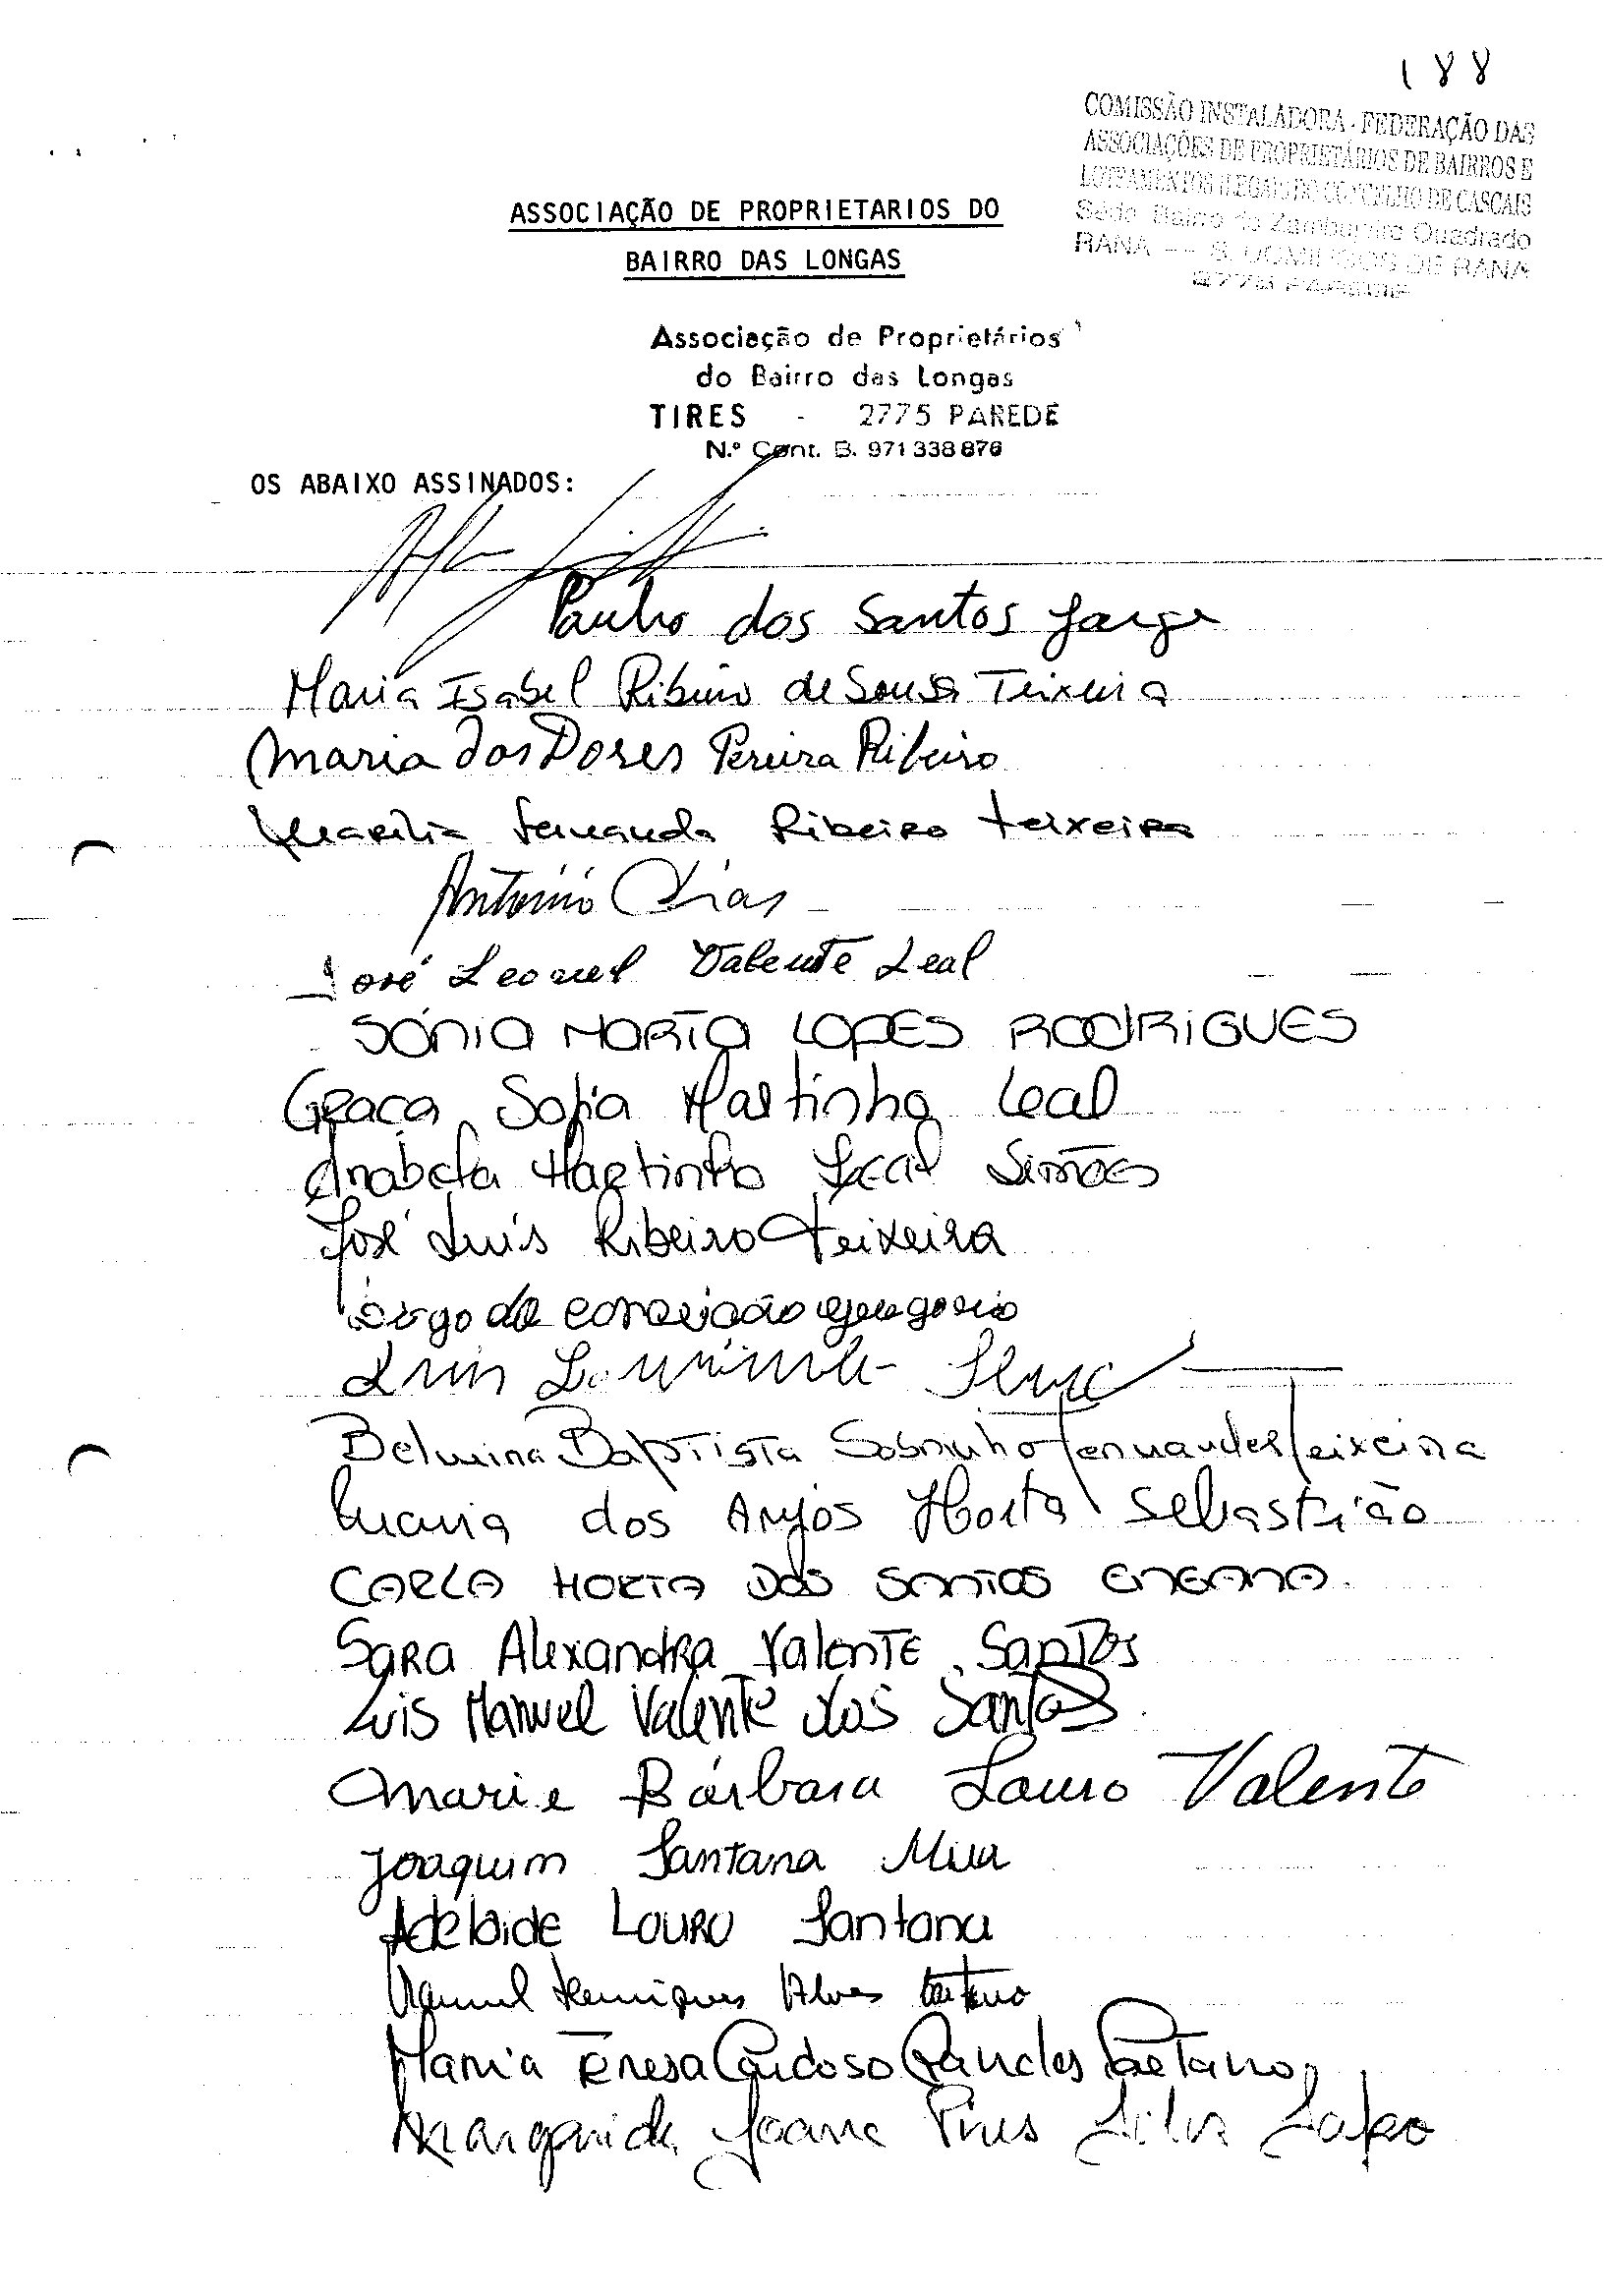 188
COMISSÃO INSTALADORA - FEDERAÇÃO DAS
ASSOCIAÇÕES DE PROPRIETÁRIOS DE BAIRROS E
LOTEAMENTOS ILEGAIS DO CONCELHO DE CASCAIS
Sede Bairro do Zambujeiro Quadrado
RANA -- S. DOMINGOS DE RANA
2775 PAREDE
ASSOCIAÇÃO DE PROPRIETARIOS DO
BAIRRO DAS LONGAS
Associação de Proprietários
do Bairro das Longas
TIRES - 2775 PAREDE
N.º Cont. B. 971 338 876
OS ABAIXO ASSINADOS:
Paulo dos Santos Jorge
Maria Isabel Ribeiro de Sousa Teixeira
Maria das Dores Pereira Ribeiro
Marilia Fernanda Ribeiro Teixeira
António Dias
José Leonel Valente Leal
SÓNIA MARTA LOPES RODRIGUES
Graça Sofia Martinho Leal
Anabela Martinho Leal Simões
José Luís Ribeiro Teixeira
da conceição gregorio
Luis
Belmina Baptista Sobrinho Fernandes Teixeira
Maria dos Anjos Horta Sebastião
CARLA HORTA DOS SANTOS ENGANA.
Sara Alexandra Valente Santos
Luis Manuel Valente dos Santos
Maria Bárbara Louro Valente
Joaquim Santana
Adelaide Louro Santana
Manuel Henriques Alves Caetano
Maria Teresa Cardoso Caetano
Margarida Joana Pires Silva